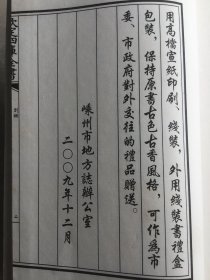 用高檔宣紙印刷、綫裝，外用綫裝書禮盒
包裝，保持原書古色古香風格，可作爲市
委、市政府對外交往的禮品贈送。
嵊州市地方誌辦公室
二〇〇九年十二月